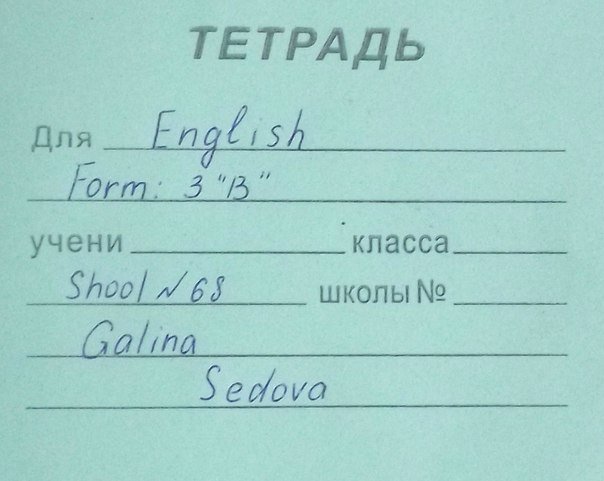 ТЕТРАДЬ
Для English
Form: 3 "B"
учени класса
Shool N 68 школы №
Galina
Sedova